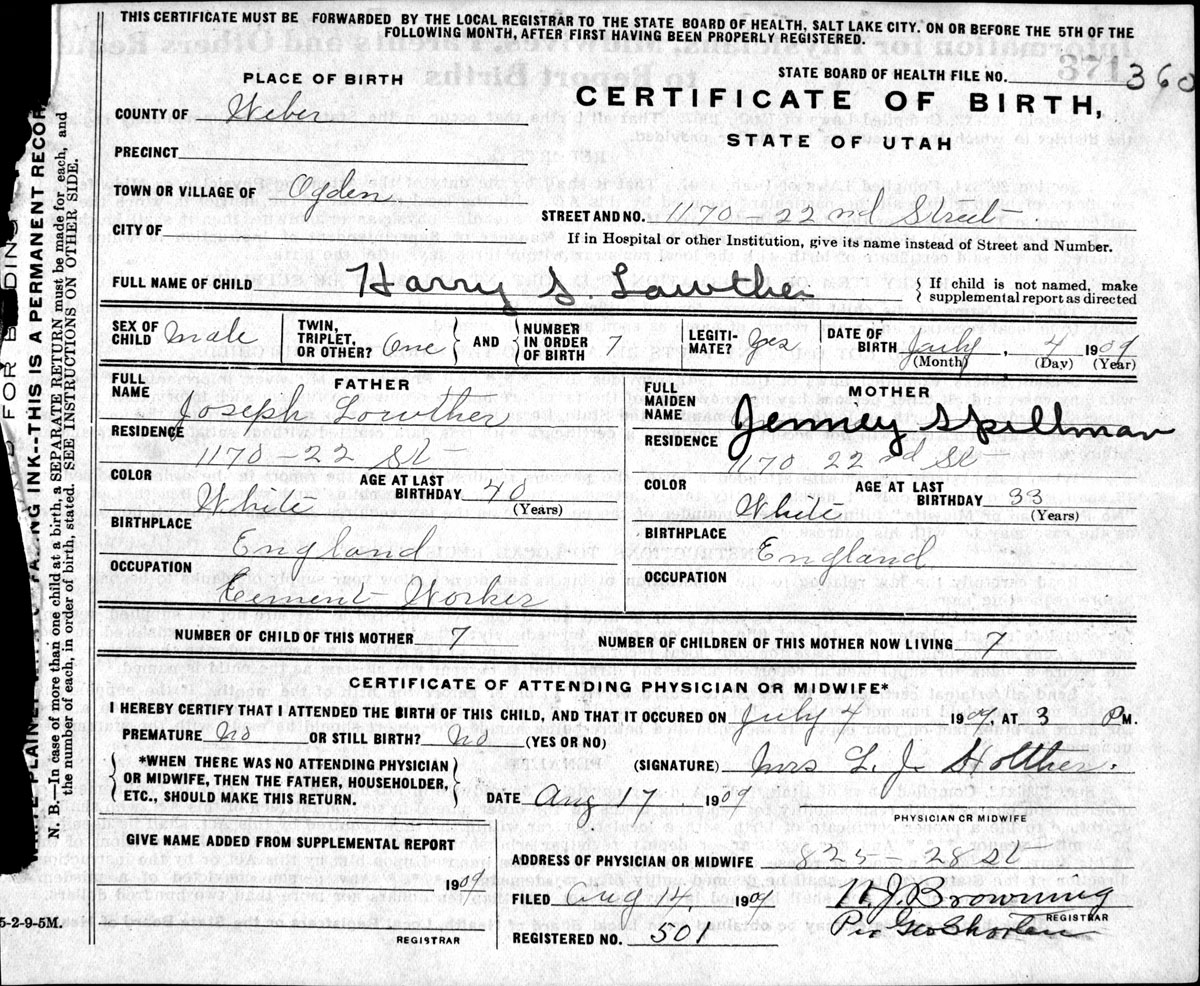 THIS CERTIFICATE MUST BE FORWARDED BY THE LOCAL REGISTRAR TO THE STATE BOARD OF HEALTH, SALT LAKE CITY. ON OR BEFORE THE 5TH OF THE
FOLLOWING MONTH, AFTER FIRST HAVING BEEN PROPERLY REGISTERED.
PLACE OF BIRTH
STATE BOARD OF HEALTH FILE NO. 360
COUNTY OF Weber
CERTIFICATE OF BIRTH,
STATE OF UTAH
PRECINCT
TOWN OR VILLAGE OF Ogden
STREET AND NO. 1170 - 22nd Street
CITY OF
If in Hospital or other Institution, give its name instead of Street and Number.
FULL NAME OF CHILD Harry S Lowther
If child is not named, make
supplemental report as directed
SEX OF CHILD male TWIN, TRIPLET, OR OTHER? One AND NUMBER IN ORDER OF BIRTH 7 LEGITI- MATE? yes DATE OF BIRTH July, 4 1909
(Month) (Day) (Year)
FULL NAME FATHER
Joseph Lowther
RESIDENCE
1170 - 22 St
COLOR White AGE AT LAST BIRTHDAY 40 (Years)
BIRTHPLACE England
OCCUPATION
Cement Worker
FULL MAIDEN NAME MOTHER
Jenney Spillman
RESIDENCE
1170 22nd St
COLOR White AGE AT LAST BIRTHDAY 33 (Years)
BIRTHPLACE England
OCCUPATION
NUMBER OF CHILD OF THIS MOTHER 7 NUMBER OF CHILDREN OF THIS MOTHER NOW LIVING 7
CERTIFICATE OF ATTENDING PHYSICIAN OR MIDWIFE*
I HEREBY CERTIFY THAT I ATTENDED THE BIRTH OF THIS CHILD, AND THAT IT OCCURED ON July 4 1909, AT 3 P M.
PREMATURE No OR STILL BIRTH? No (YES OR NO)
*WHEN THERE WAS NO ATTENDING PHYSICIAN
OR MIDWIFE, THEN THE FATHER, HOUSEHOLDER,
ETC., SHOULD MAKE THIS RETURN.
(SIGNATURE) Mrs L. J. Holther.
DATE Aug 17, 1909
PHYSICIAN OR MIDWIFE
GIVE NAME ADDED FROM SUPPLEMENTAL REPORT
1909
REGISTRAR
ADDRESS OF PHYSICIAN OR MIDWIFE 825 - 28 St
FILED Aug 4, 1909 W J Browning
REGISTRAR
REGISTERED NO. 501 Per Geo
5-2-9-5M.
FOR BINDING
PLAINLY WITH FADING INK--THIS IS A PERMANENT RECORD
N. B.--In case of more than one child at a birth, a SEPARATE RETURN must be made for each, and
the number of each, in order of birth, stated. SEE INSTRUCTIONS ON OTHER SIDE.